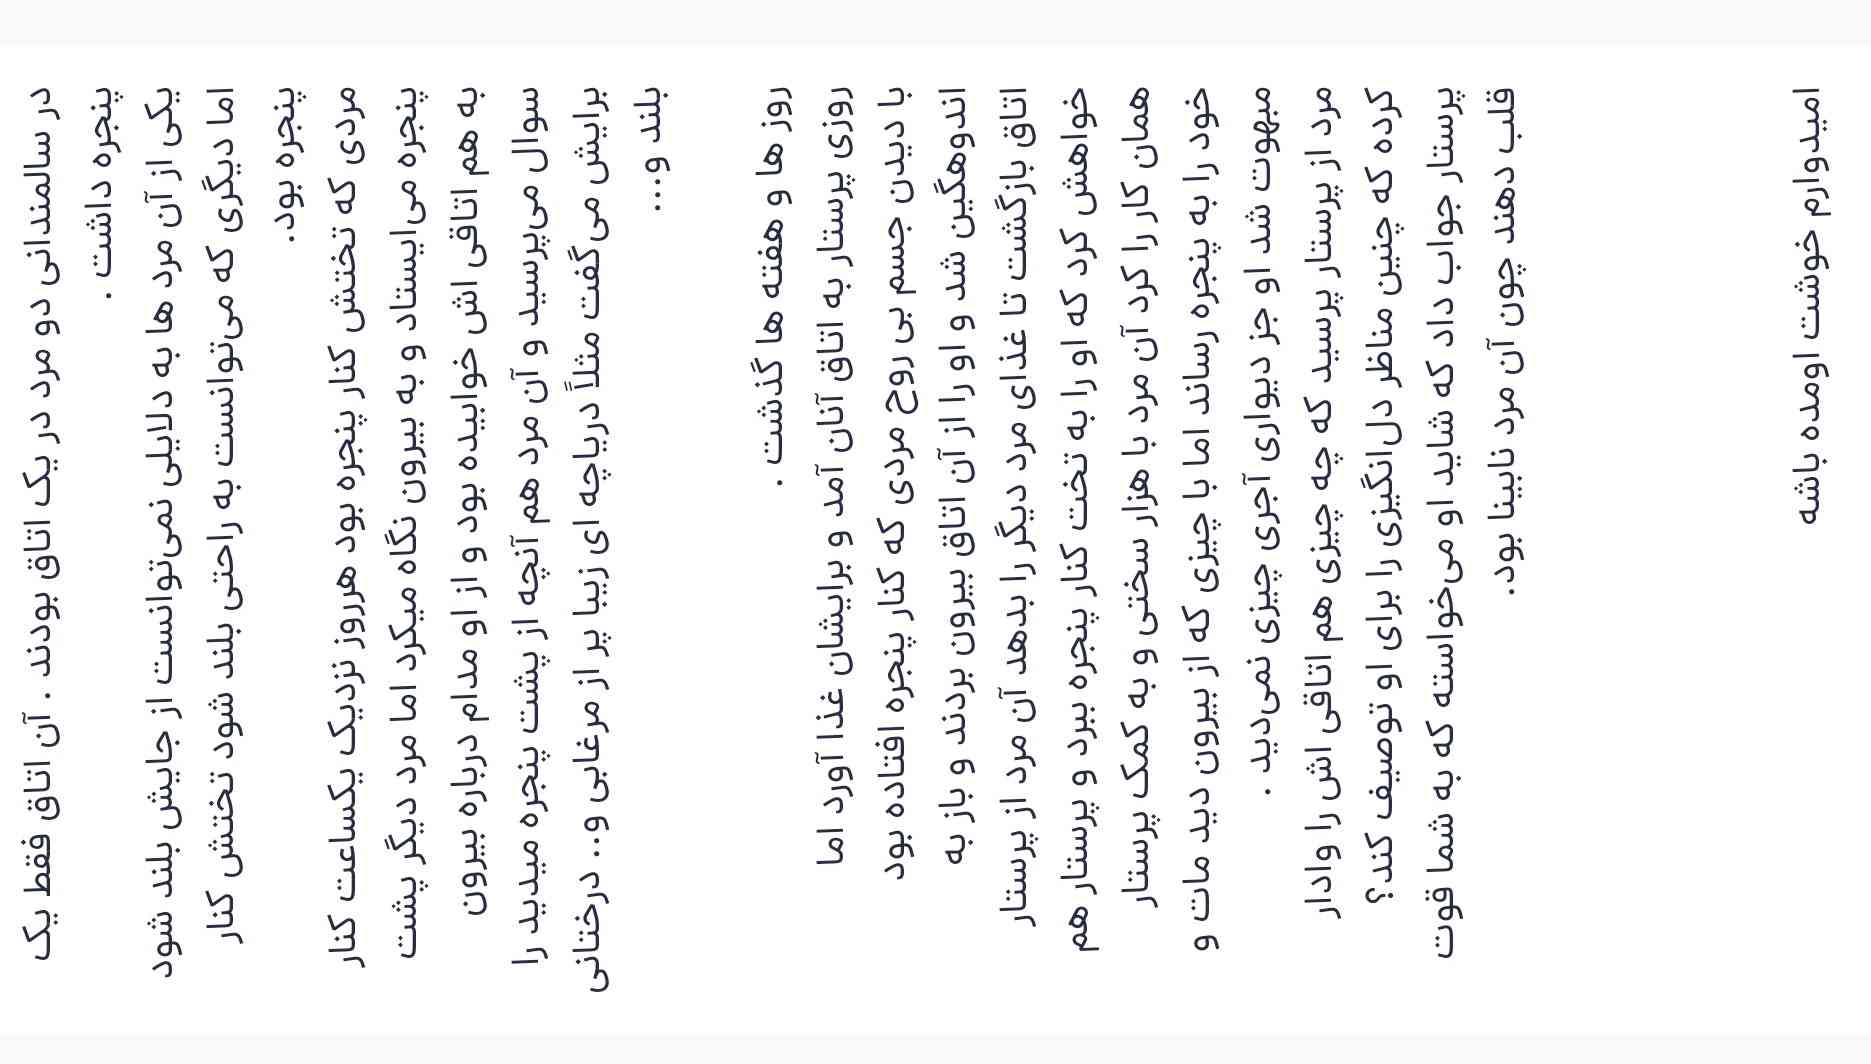 در سالمندانی دو مرد در یک اتاق بودند . آن اتاق فقط یک
پنجره داشت .
یکی از آن مرد ها به دلایلی نمی‌توانست از جایش بلند شود
اما دیگری که می‌توانست به راحتی بلند شود تختش کنار
پنجره بود.
مردی که تختش کنار پنجره بود هرروز نزدیک یکساعت کنار
پنجره می‌ایستاد و به بیرون نگاه میکرد اما مرد دیگر پشت
به هم اتاقی اش خوابیده بود و از او مدام درباره بیرون
سوال می‌پرسید و آن مرد هم آنچه از پشت پنجره میدید را
برایش می‌گفت مثلاً دریاچه ای زیبا پر از مرغابی و.. درختانی
بلند و...
روز ها و هفته ها گذشت .
روزی پرستار به اتاق آنان آمد و برایشان غذا آورد اما
با دیدن جسم بی روح مردی که کنار پنجره افتاده بود
اندوهگین شد و او را از آن اتاق بیرون بردند و باز به
اتاق بازگشت تا غذای مرد دیگر را بدهد آن مرد از پرستار
خواهش کرد که او را به تخت کنار پنجره ببرد و پرستار هم
همان کار را کرد آن مرد با هزار سختی و به کمک پرستار
خود را به پنجره رساند اما با چیزی که از بیرون دید مات و
مبهوت شد او جز دیواری آجری چیزی نمی‌دید .
مرد از پرستار پرسید که چه چیزی هم اتاقی اش را وادار
کرده که چنین مناظر دل‌انگیزی را برای او توصیف کند؟
پرستار جواب داد که شاید او می‌خواسته که به شما قوت
قلب دهند چون آن مرد نابینا بود.
امیدوارم خوشت اومده باشه